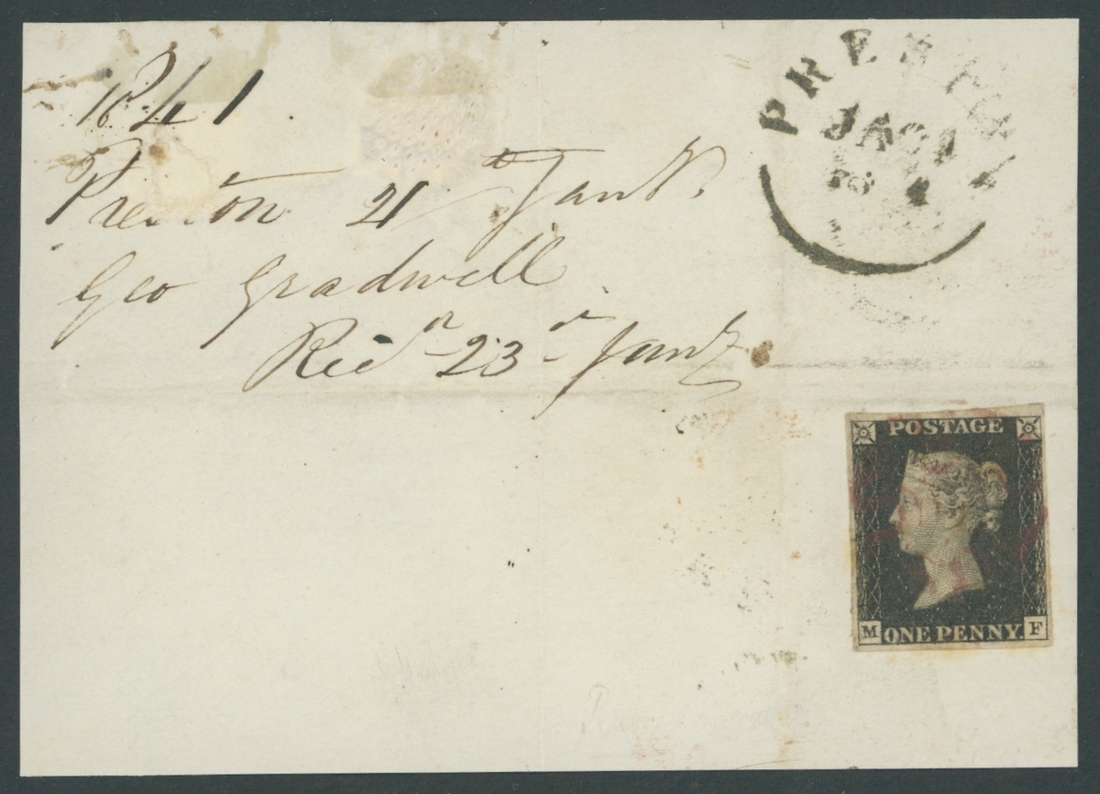 1841.
Preston 21st Jany.
Geo Gradwell
Recd 23rd Jany
PRESTON
JA 21
184
POSTAGE
M ONE PENNY F